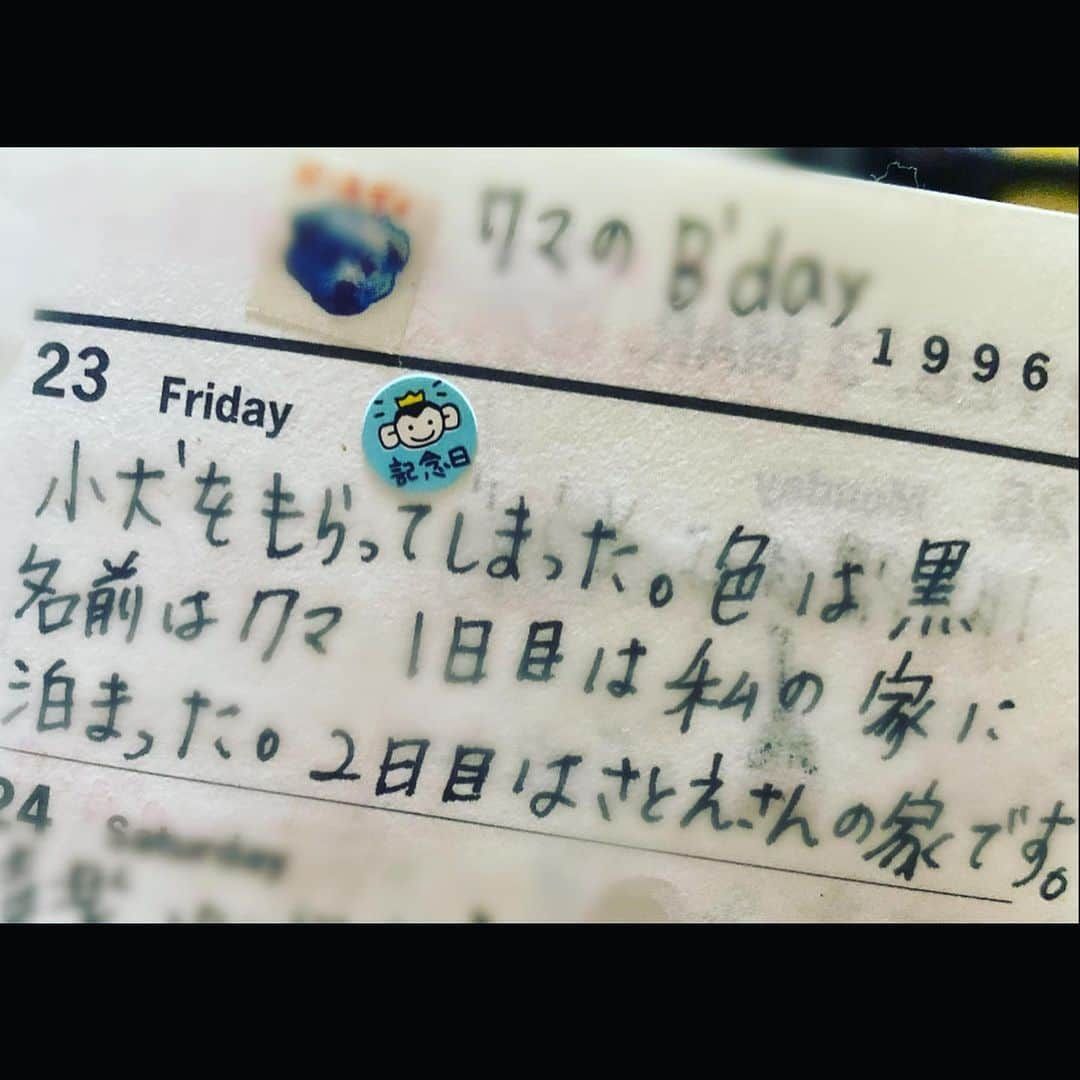 クマのB'day
1996
23 Friday
記念日
小犬をもらってしまった。色は黒
名前はクマ 1日目は私の家に
泊まった。2日目はさとえさんの家です。
24 Saturday